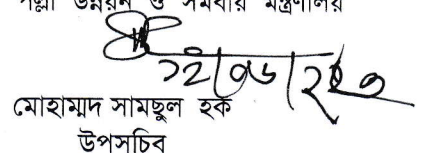 পল্লী উন্নয়ন ও সমবায় মন্ত্রণালয়
মোহাম্মদ সামছুল হক
উপসচিব